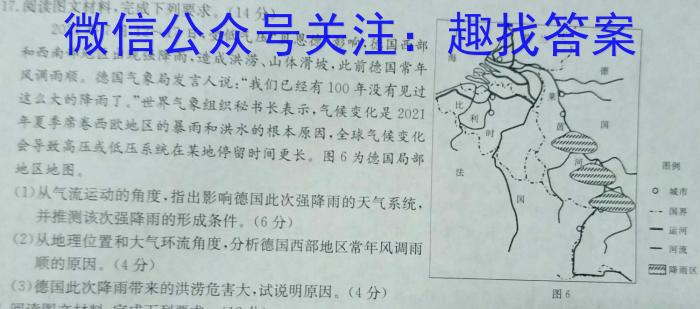 17.阅读图文材料,完成下列要求。(14分)
微信公众号关注:趣找答案
和西南部地区出现强降雨,造成洪涝、山体滑坡,此前德国常年
风调雨顺。德国气象局发言人说:“我们已经有100年没有见过
这么大的降雨了。”世界气象组织秘书长表示,气候变化是2021
年夏季席卷西欧地区的暴雨和洪水的根本原因,全球气候变化
会导致高压或低压系统在某地停留时间更长。图6为德国局部
地区地图。
(1)从气流运动的角度,指出影响德国此次强降雨的天气系统,
并推测该次强降雨的形成条件。(6分)
(2)从地理位置和大气环流角度,分析德国西部地区常年风调雨
顺的原因。(4分)
(3)德国此次降雨带来的洪涝危害大,试说明原因。(4分)
海
德
莱
茵
河
国
比
利
时
法
国
图例
城市
国界
运河
河流
降雨区
图6